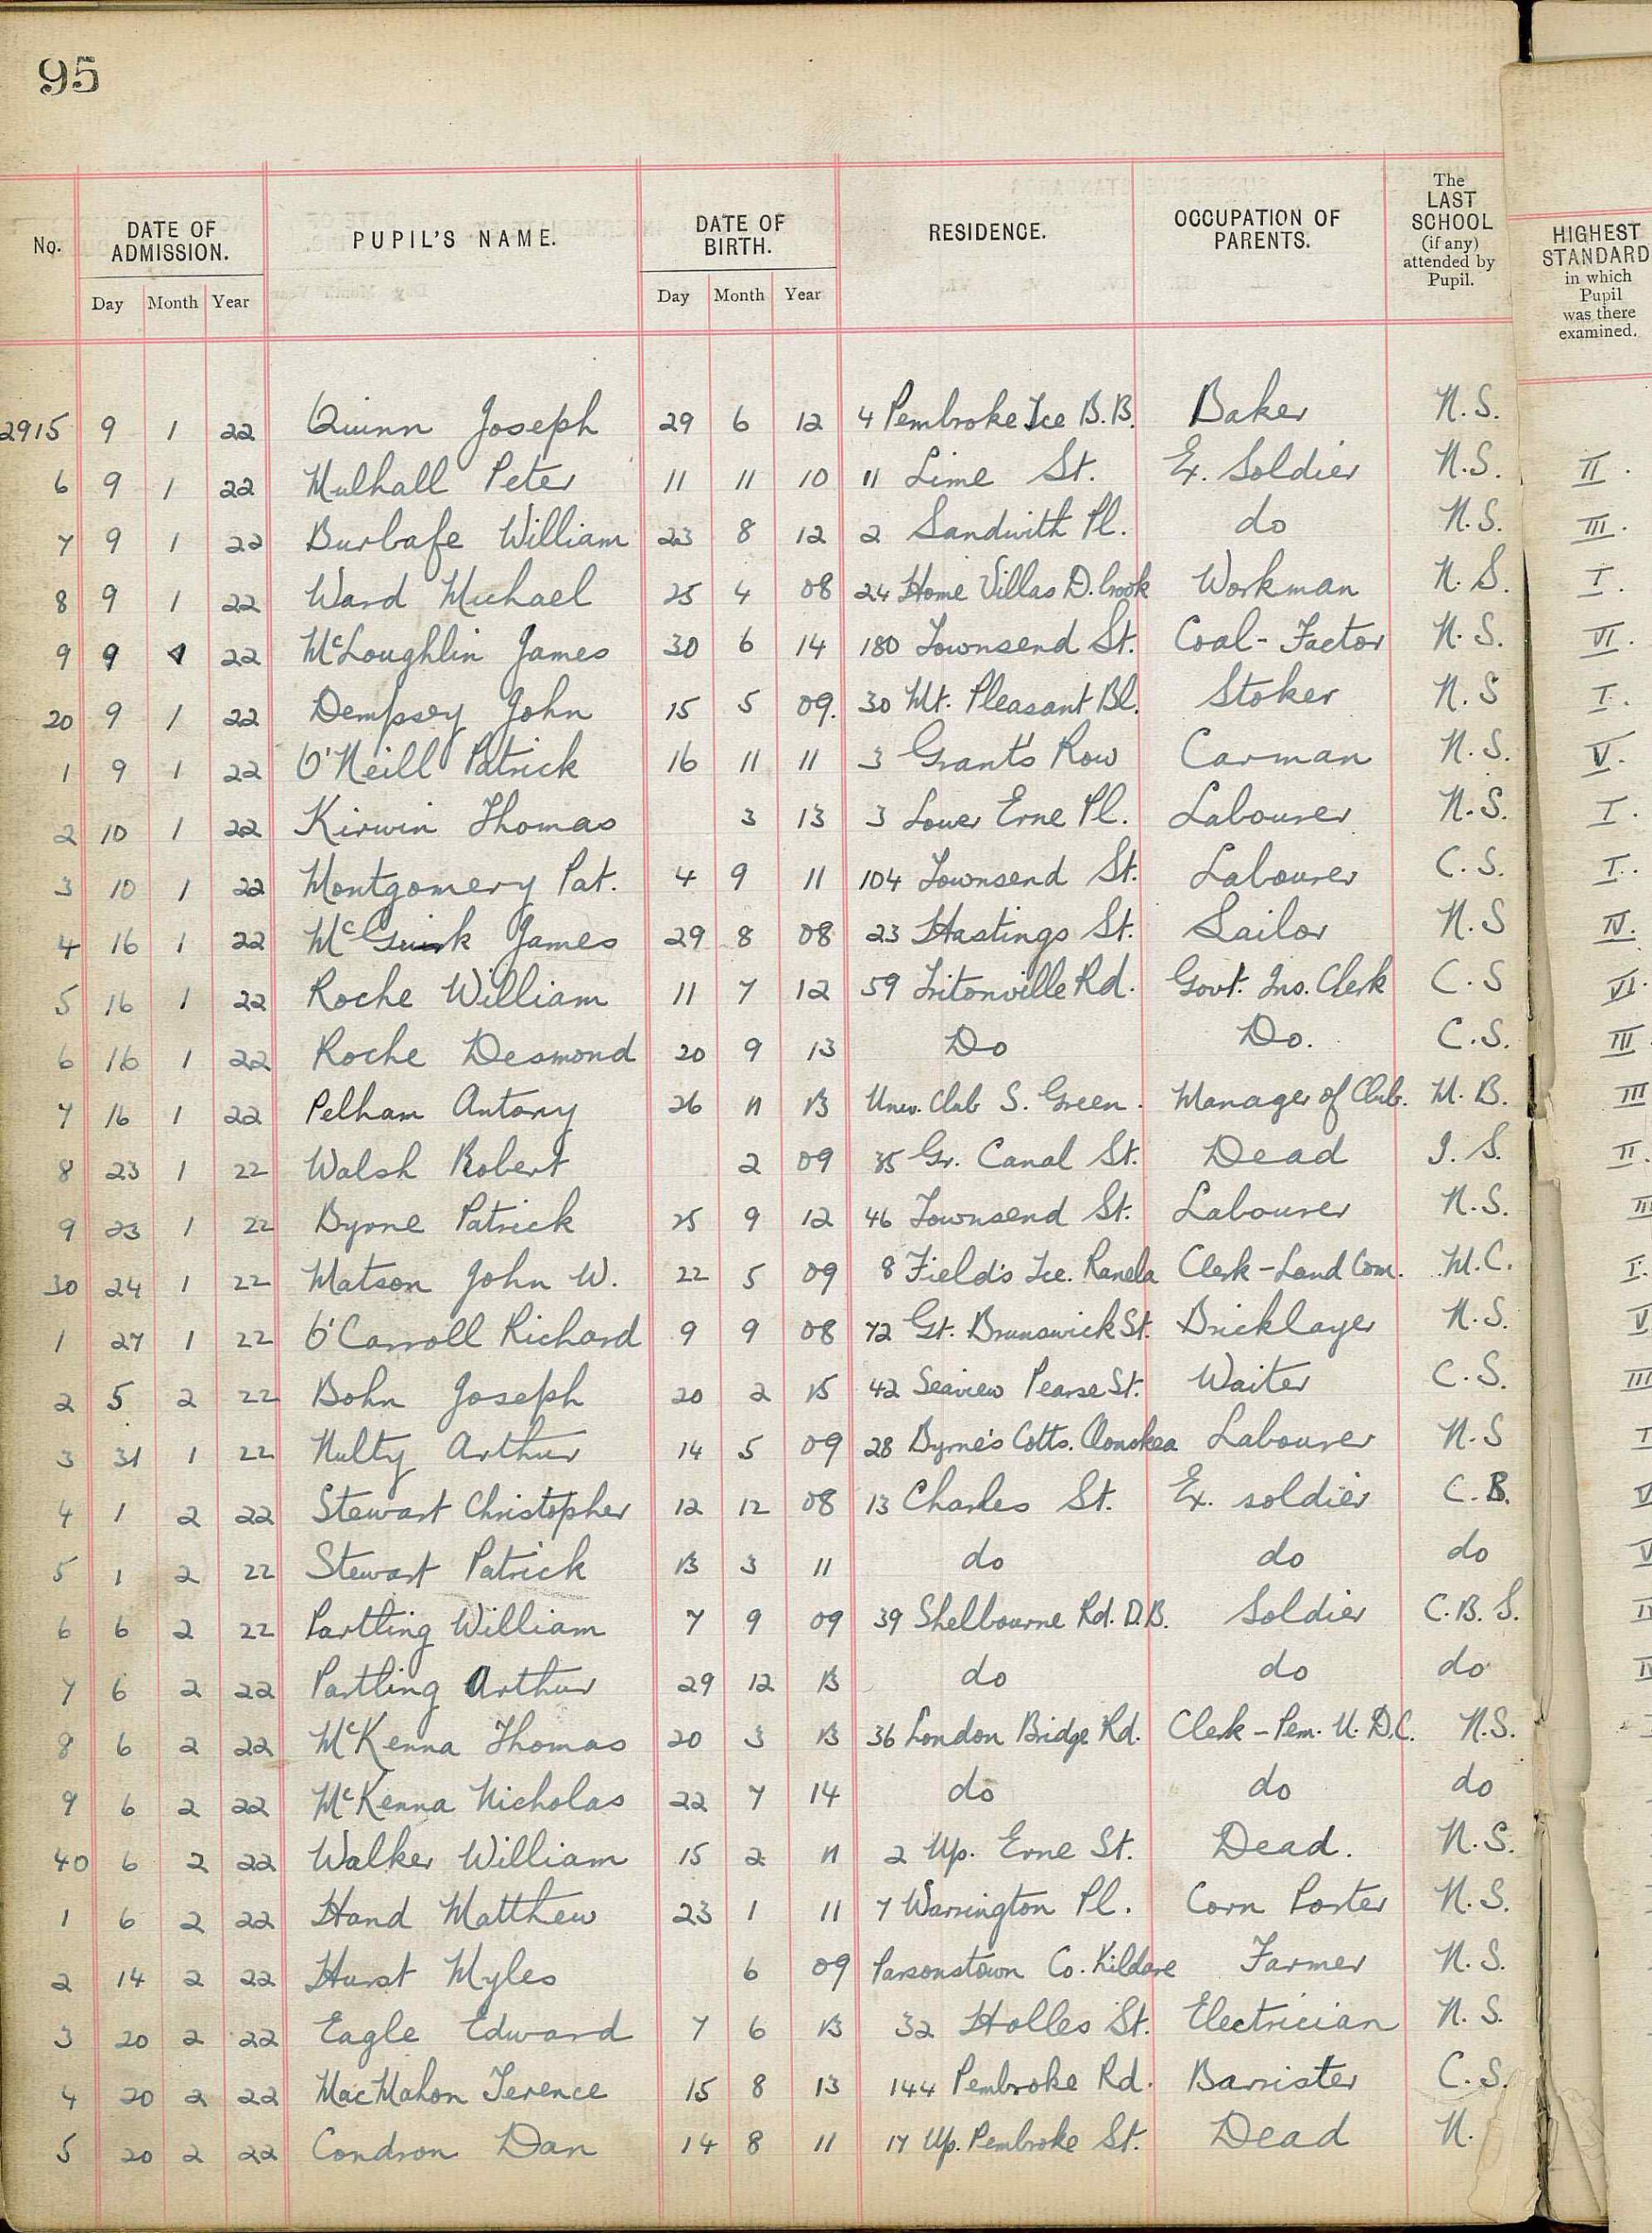 95
No. DATE OF ADMISSION. PUPIL'S NAME. DATE OF BIRTH. RESIDENCE. OCCUPATION OF PARENTS. The LAST SCHOOL (if any) attended by Pupil. HIGHEST STANDARD in which Pupil was there examined.
Day Month Year Day Month Year
2915 9 1 22 Quinn Joseph 29 6 12 4 Pembroke Tce B.B. Baker N.S.
6 9 1 22 Mulhall Peter 11 11 10 11 Lime St. Ex. Soldier N.S. II.
7 9 1 22 Burbafe William 23 8 12 2 Sandwith Pl. do N.S. III.
8 9 1 22 Ward Michael 25 4 08 24 Home Villas D.brook Workman N.S. I.
9 9 1 22 McLoughlin James 30 6 14 180 Townsend St. Coal-Factor N.S. VI.
20 9 1 22 Dempsey John 15 5 09. 30 Mt. Pleasant Bl. Stoker N.S I.
1 9 1 22 O'Neill Patrick 16 11 11 3 Grant's Row Carman N.S. V.
2 10 1 22 Kirwin Thomas 3 13 3 Lower Erne Pl. Labourer N.S. I.
3 10 1 22 Montgomery Pat. 4 9 11 104 Townsend St. Labourer C.S. I.
4 16 1 22 McGuirk James 29 8 08 23 Hastings St. Sailor N.S IV.
5 16 1 22 Roche William 11 7 12 59 Tritonville Rd. Govt. Ins. Clerk C.S VI.
6 16 1 22 Roche Desmond 20 9 13 Do Do. C.S. III.
7 16 1 22 Pelham Antony 26 11 13 Univ. Club S. Green. Manager of Club. M.B. III
8 23 1 22 Walsh Robert 2 09 35 Gr. Canal St. Dead I.S. II.
9 23 1 22 Byrne Patrick 25 9 12 46 Townsend St. Labourer N.S. III
30 24 1 22 Matson John W. 22 5 09 8 Field's Tce. Ranela Clerk-Land Com. M.C. I.
1 27 1 22 O'Carroll Richard 9 9 08 72 Gt. Brunswick St. Bricklayer N.S. V
2 5 2 22 Bohn Joseph 20 2 15 42 Seaview Pearse St. Waiter C.S. III
3 31 1 22 Nulty Arthur 14 5 09 28 Byrne's Cotts. Clonskea Labourer N.S
4 1 2 22 Stewart Christopher 12 12 08 13 Charles St. Ex. soldier C.B.
5 1 2 22 Stewart Patrick 13 3 11 do do do
6 6 2 22 Partling William 7 9 09 39 Shelbourne Rd. D.B. Soldier C.B.S.
7 6 2 22 Partling Arthur 29 12 13 do do do
8 6 2 22 McKenna Thomas 20 3 13 36 London Bridge Rd. Clerk-Pem. U.D.C. N.S.
9 6 2 22 McKenna Nicholas 22 7 14 do do do
40 6 2 22 Walker William 15 2 11 2 Up. Erne St. Dead. N.S.
1 6 2 22 Hand Matthew 23 1 11 7 Warrington Pl. Corn Porter N.S.
2 14 2 22 Hurst Myles 6 09 Parsonstown Co. Kildare Farmer N.S.
3 20 2 22 Eagle Edward 7 6 13 32 Holles St. Electrician N.S.
4 20 2 22 MacMahon Terence 15 8 13 144 Pembroke Rd. Barrister C.S.
5 20 2 22 Condron Dan 14 8 11 17 Up. Pembroke St. Dead N.